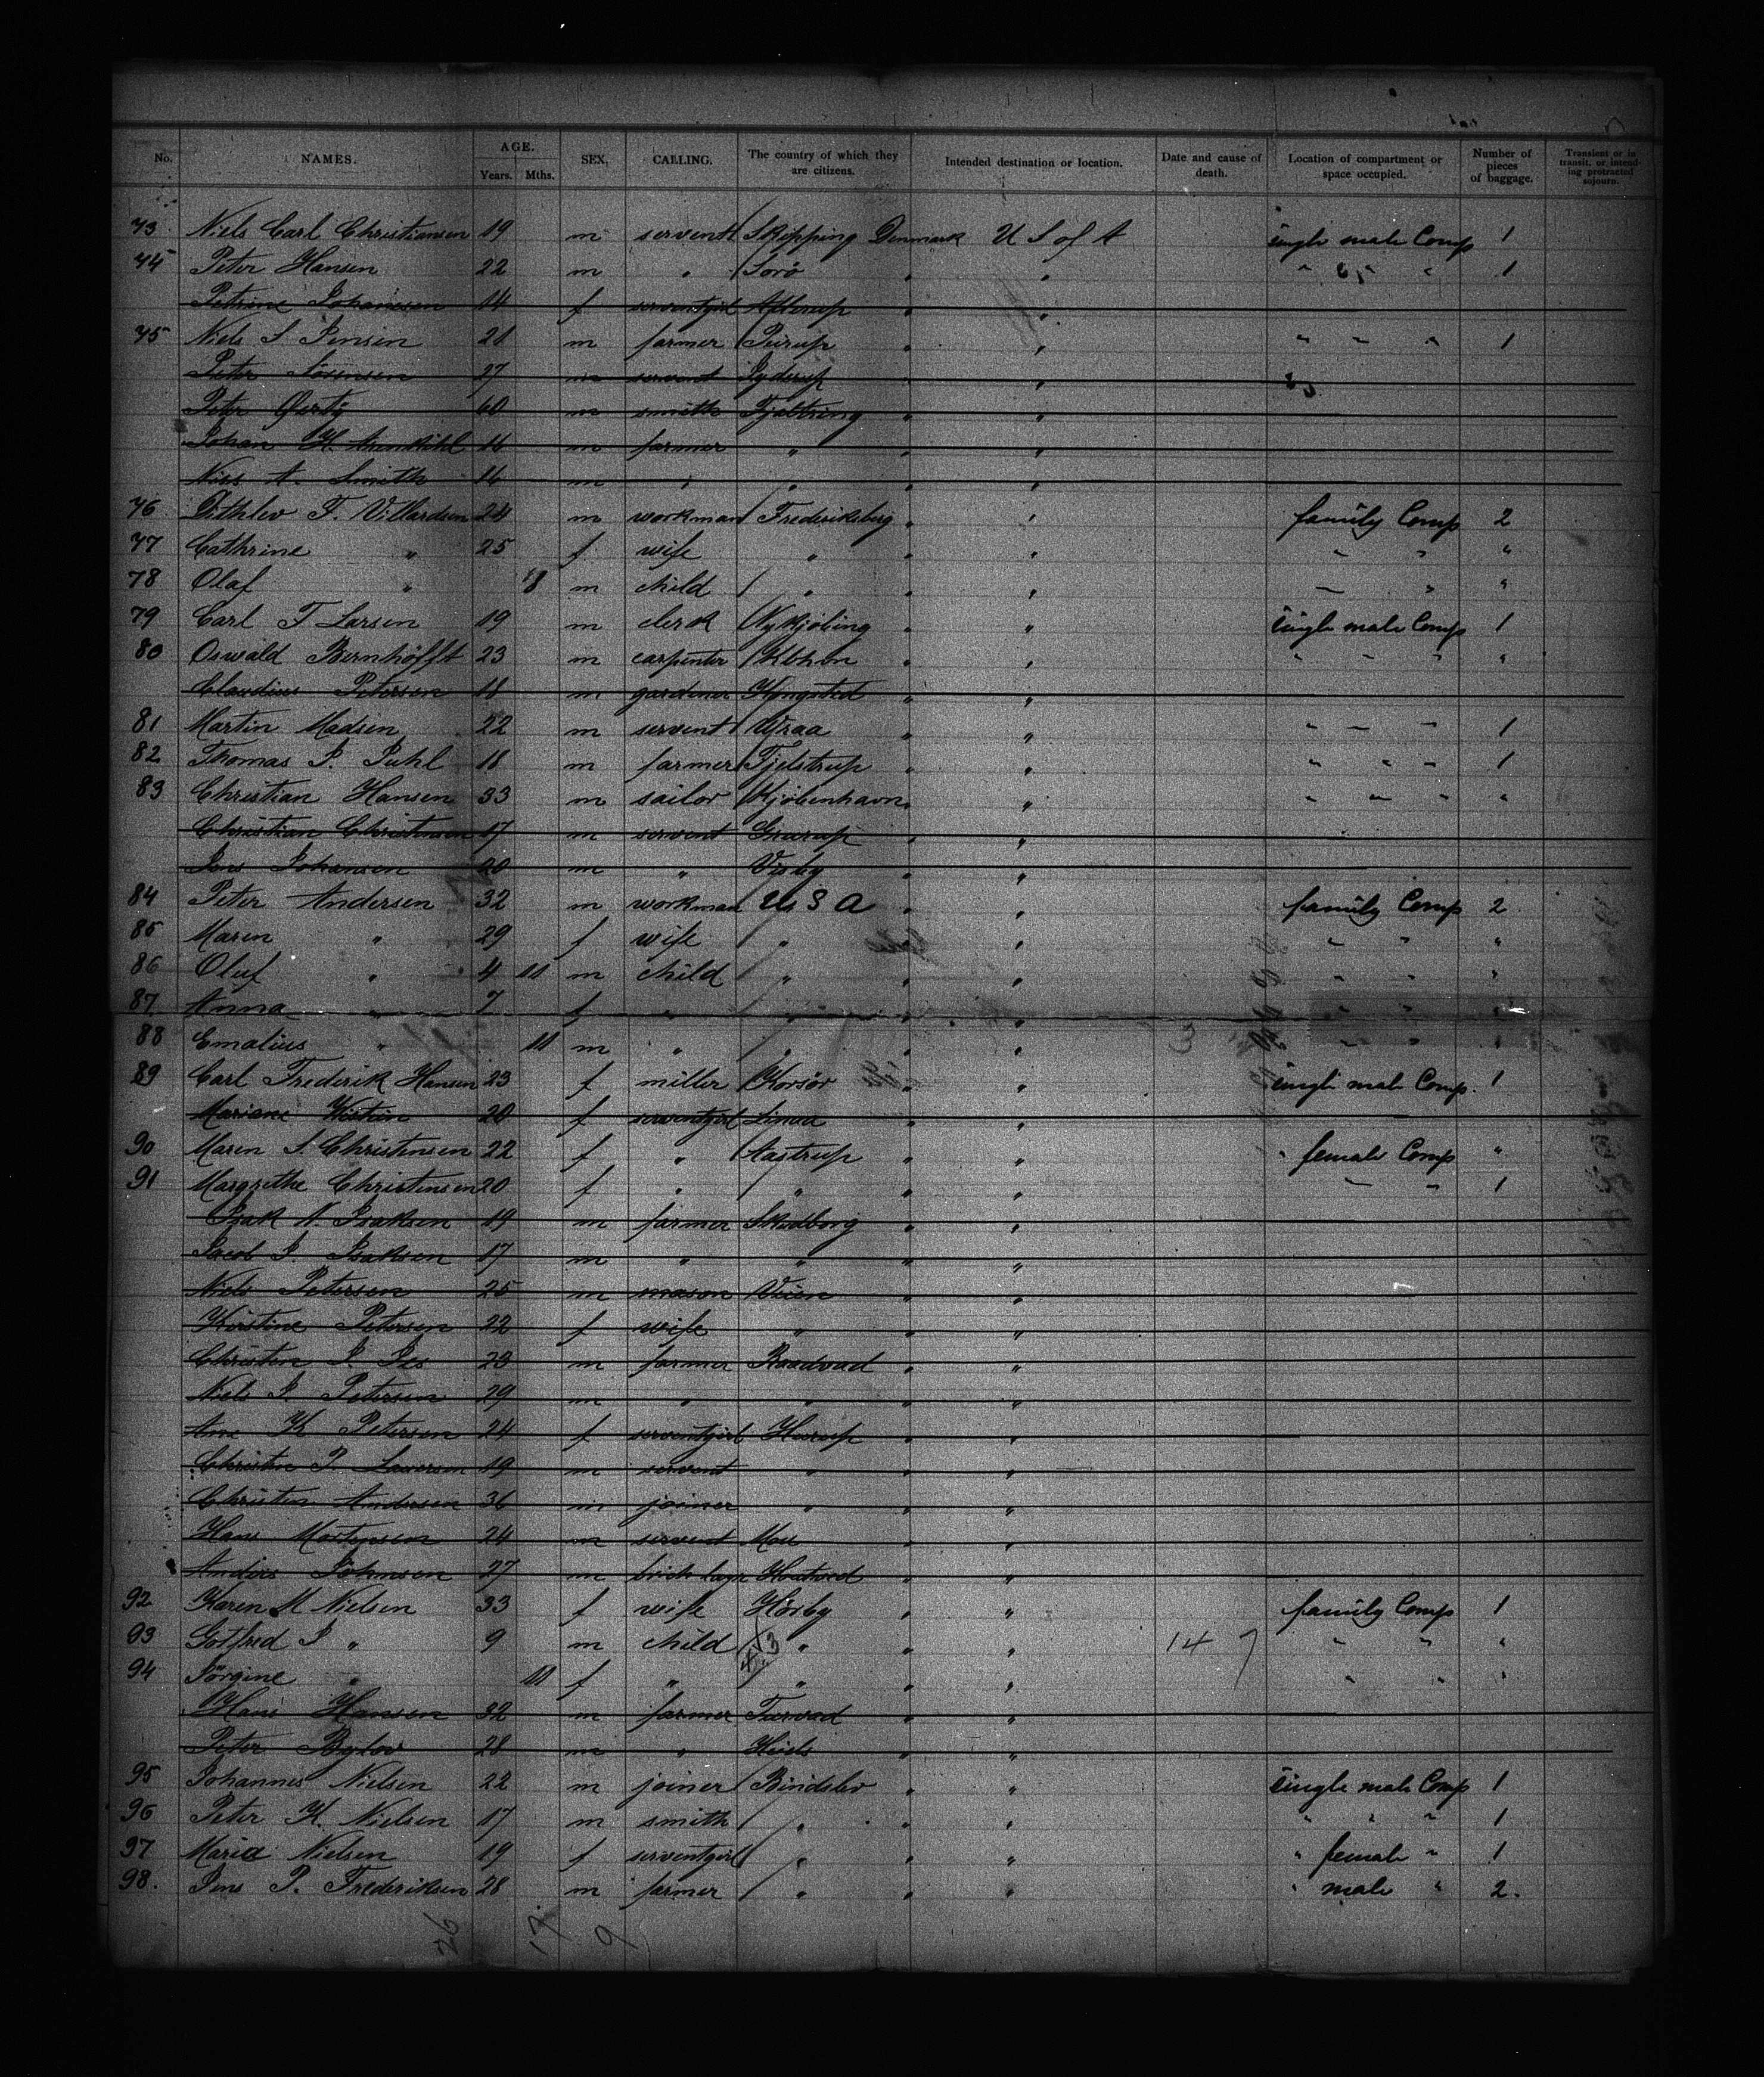 No. NAMES. AGE. Years. Mths. SEX. CALLING. The country of which they are citizens. Intended destination or location. Date and cause of death. Location of compartment or space occupied. Number of pieces of baggage. Transient or in transit, or intending protracted sojourn.
73 Niels Carl Christiansen 19 m servent Skipping Denmark U S of A single male Comp 1
74 Peter Hansen 22 m " Sorö " " " " " 1
Petrine Johansen 14 f serventgirl " "
75 Niels S Jensen 21 m farmer " " " " " 1
Peter Sörensen 27 m servent Jyderup " "
Peter 60 m smith Fjaltring " "
Johan H. 16 m farmer " " "
Niss A. Smith 16 m " " " "
76 Dithlev F. Villardsen 24 m workman Frederiksberg " " family Comp 2
77 Cathrine " 25 f wife " " " " " "
78 Olaf " 8 m child " " " " " "
79 Carl F Larsen 19 m clerk Nykjöbing " " single male Comp 1
80 Oswald Bernhöfft 23 m carpenter Kbhvn " " " " " "
Claudius Petersen 18 m gardener " "
81 Martin Madsen 22 m servent Vraa " " " " " 1
82 Thomas P. Juhl 18 m farmer Fjelstrup " " " " " 1
83 Christian Hansen 33 m sailor Kjöbenhavn " " " " " "
Christian Christensen 17 m servent " "
Jens Johansen 20 m " Visby " "
84 Peter Andersen 32 m workman U S A " " family Comp 2
85 Maren " 29 f wife " " " " " "
86 Oluf " 4 11 m child " " " " " "
87 Anna " 7 f " " " " " " "
88 Emalius " 11 m " " " " 3 " " 1
89 Carl Frederik Hansen 23 f miller Korsör " " single male Comp. 1
Mariane 20 f serventgirl Linaa " "
90 Maren S. Christensen 22 f " Aastrup " " " female Comp "
91 Margrethe Christensen 20 f " " " " " " 1
Isak N. Isaksen 19 m farmer Skodborg " "
Jacob J. Isaksen 17 m " " " "
Niels Petersen 25 m mason Veien " "
Kirstine Petersen 22 f wife " " "
Christen J. 23 m farmer Raadvad " "
Niels J. Petersen 29 m " " " "
Ane K Petersen 24 f serventgirl " "
Christen P. Laursen 19 m servent " " "
Christen Andersen 36 m joiner " " "
Hans Mortensen 24 m servent Mou " "
Anders Johnsen 27 m " "
92 Karen M Nielsen 33 f wife Hörby " " family Comp 1
93 Gotfred J " 9 m child " " " 14 7 " " "
94 Jörgine " 11 f " " " " " " "
Hans Hansen 32 m farmer Farvad " "
Peter Bylov 28 m " " "
95 Johannes Nielsen 22 m joiner Bindslev " " single male Comp 1
96 Peter K. Nielsen 17 m smith " " " " " " 1
97 Maria Nielsen 19 f serventgirl " " " " female " 1
98. Jens P. Frederiksen 28 m farmer " " " " male " 2.
26 17 9